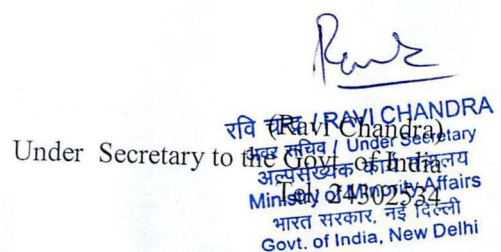 (Ravi Chandra)
Under Secretary to the Govt. of India
Tel: 24302534
रवि चन्द्र / RAVI CHANDRA
अवर सचिव / Under Secretary
अल्पसंख्यक कार्य मंत्रालय
Ministry of Minority Affairs
भारत सरकार, नई दिल्ली
Govt. of India, New Delhi